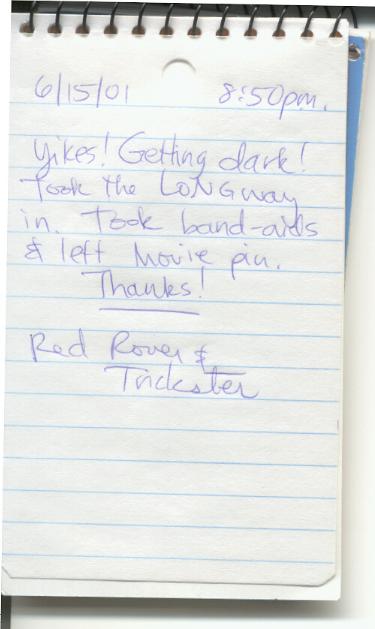 6/15/01 8:50pm.
Yikes! Getting dark!
Took the LONG way
in. Took band-aids
& left Movie pin.
Thanks!
Red Rover &
Trickster